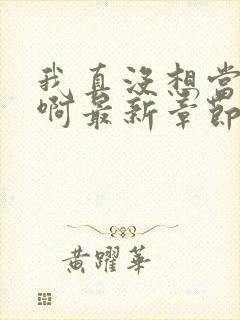 我真没想当
啊最新章節
黄躍華